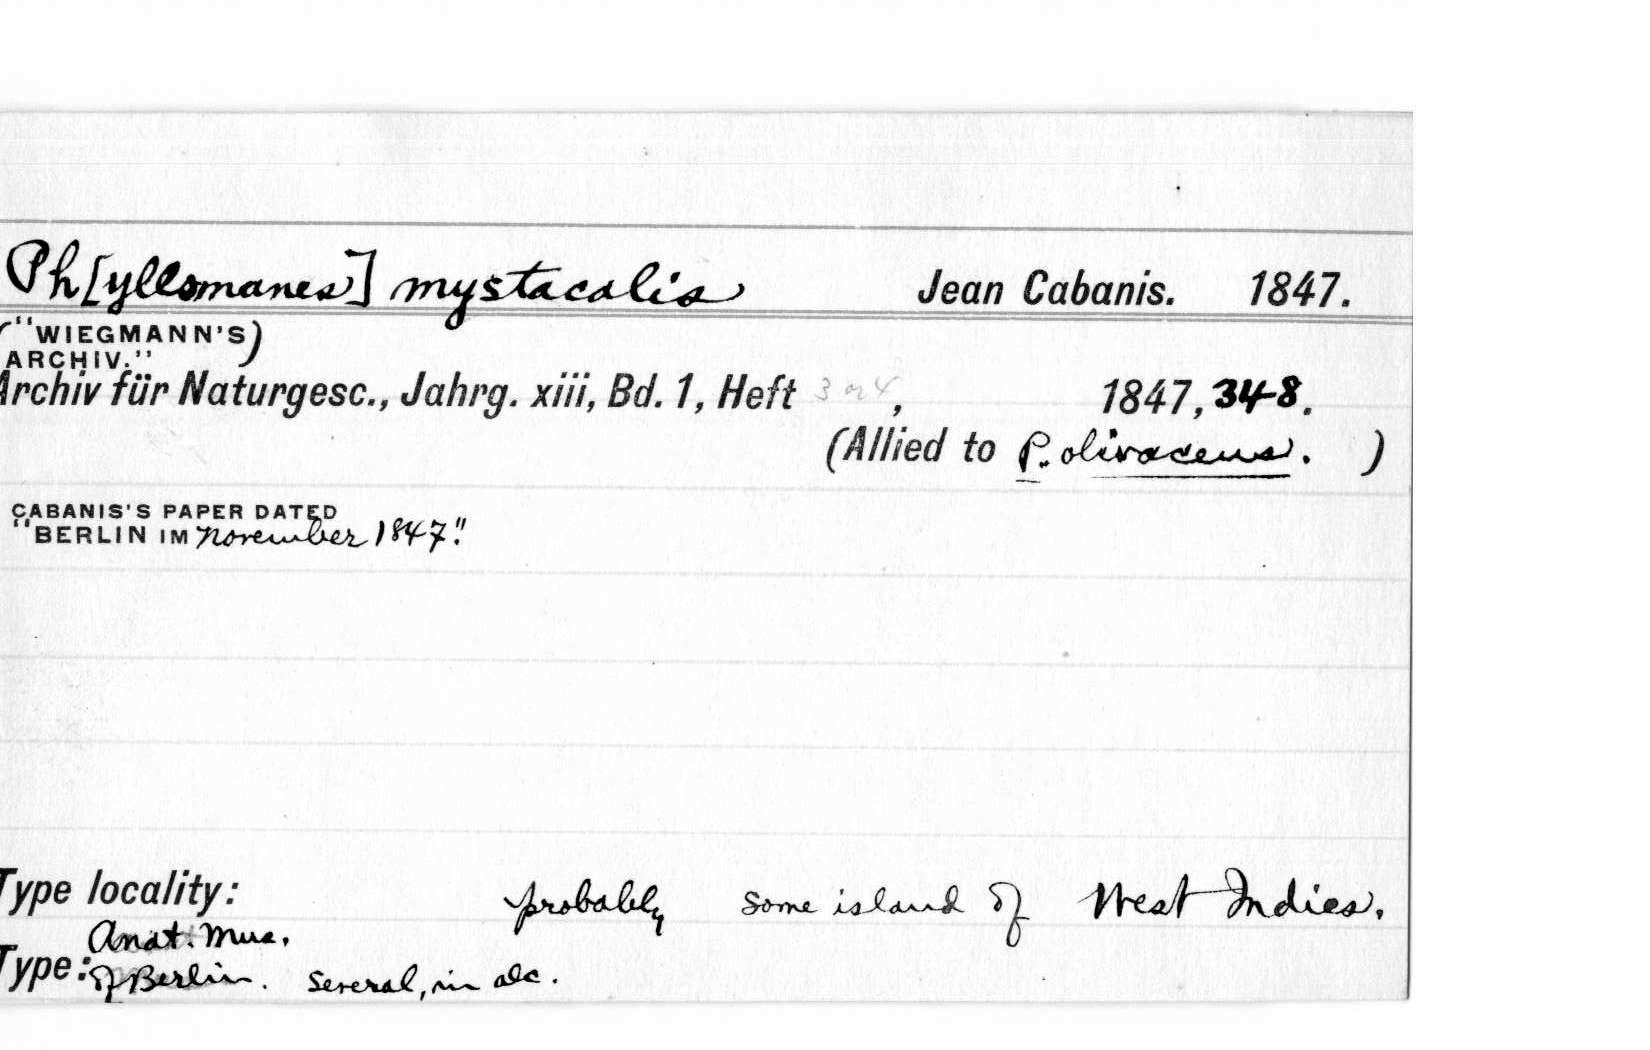 Ph[yllomanes] mystacalis Jean Cabanis. 1847.
("WIEGMANN'S
ARCHIV.")
Archiv für Naturgesc., Jahrg. xiii, Bd. 1, Heft 3 or 4, 1847, 348.
(Allied to P. olivaceus. )
CABANIS'S PAPER DATED
"BERLIN IM november 1847."
Type locality: probably some island of West Indies.
Anat. Mus.
Type: of Berlin. Several, in alc.